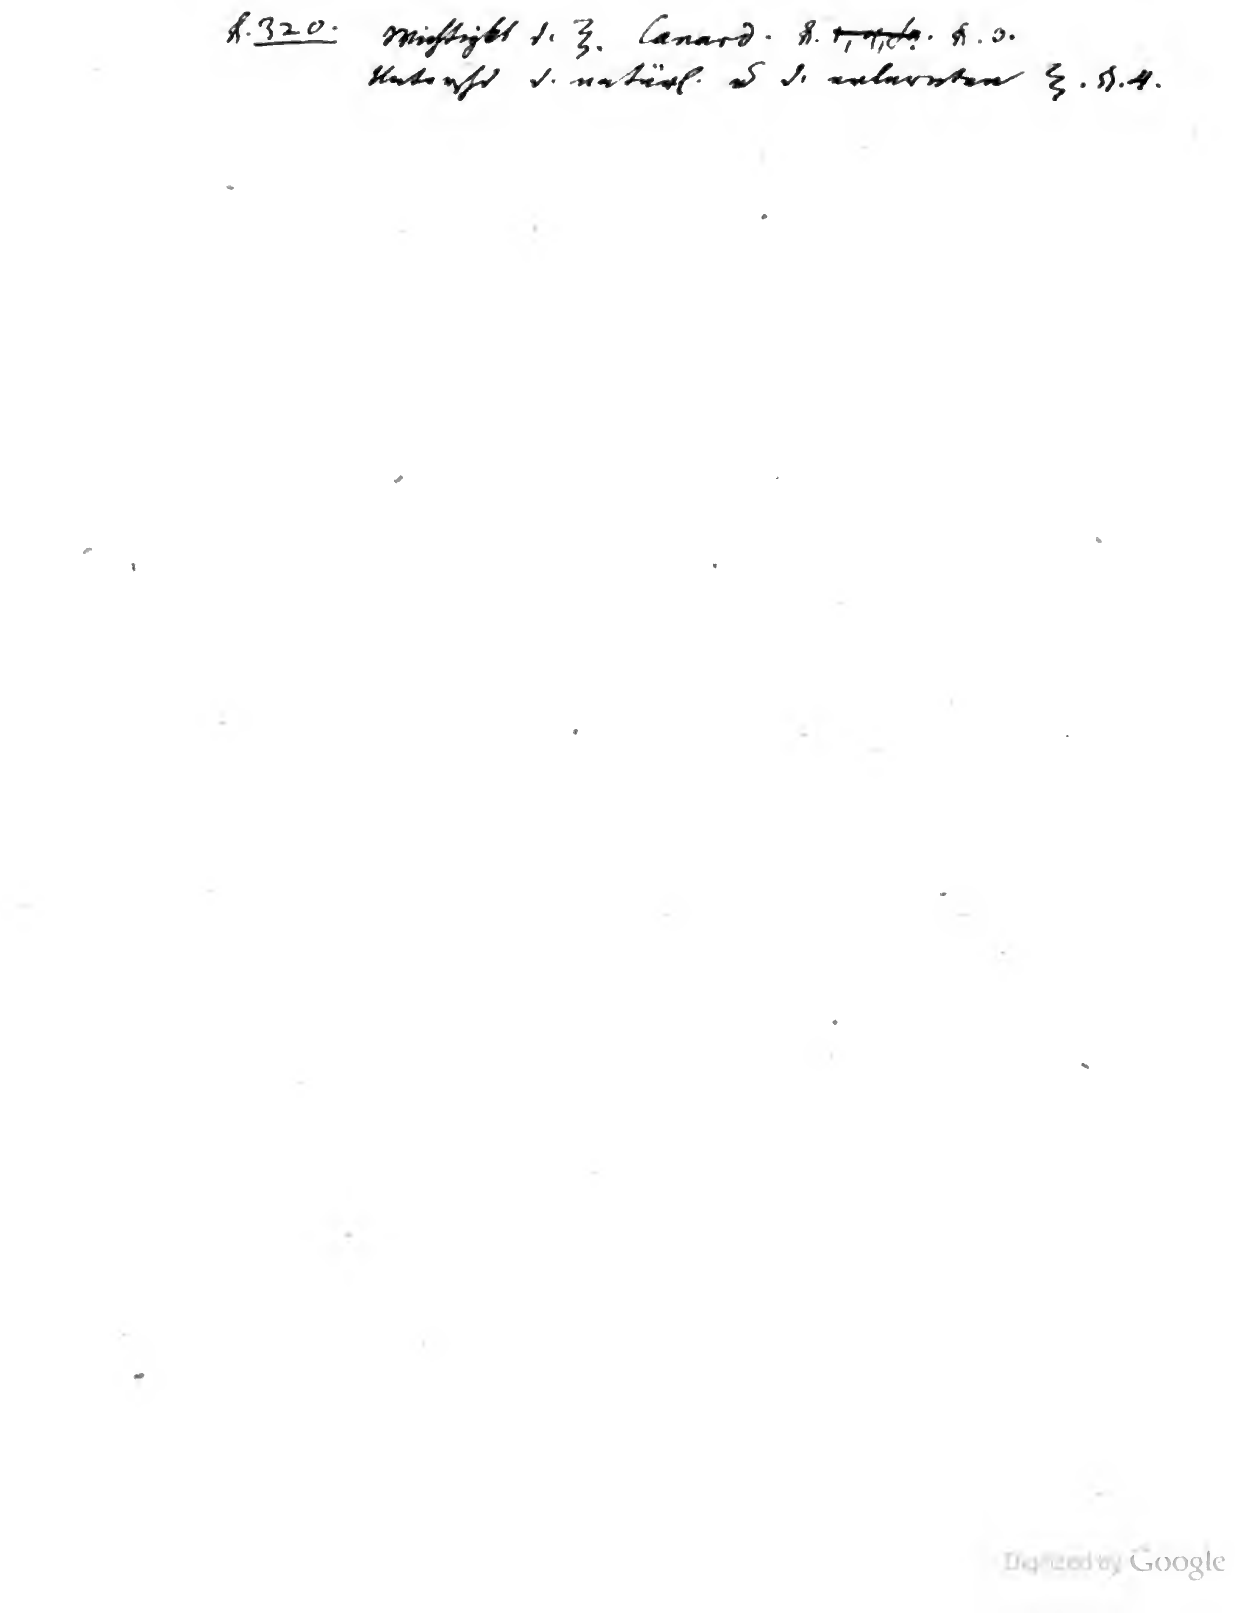 §.320. Wichtigkt d. Canard. §. §.3.
Unterschd d. natürl. u d. erlernten §.4.
Digitized by Google